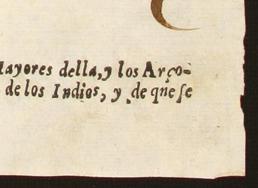 Mayores della, y los Arço-
de los Indios, y de que se